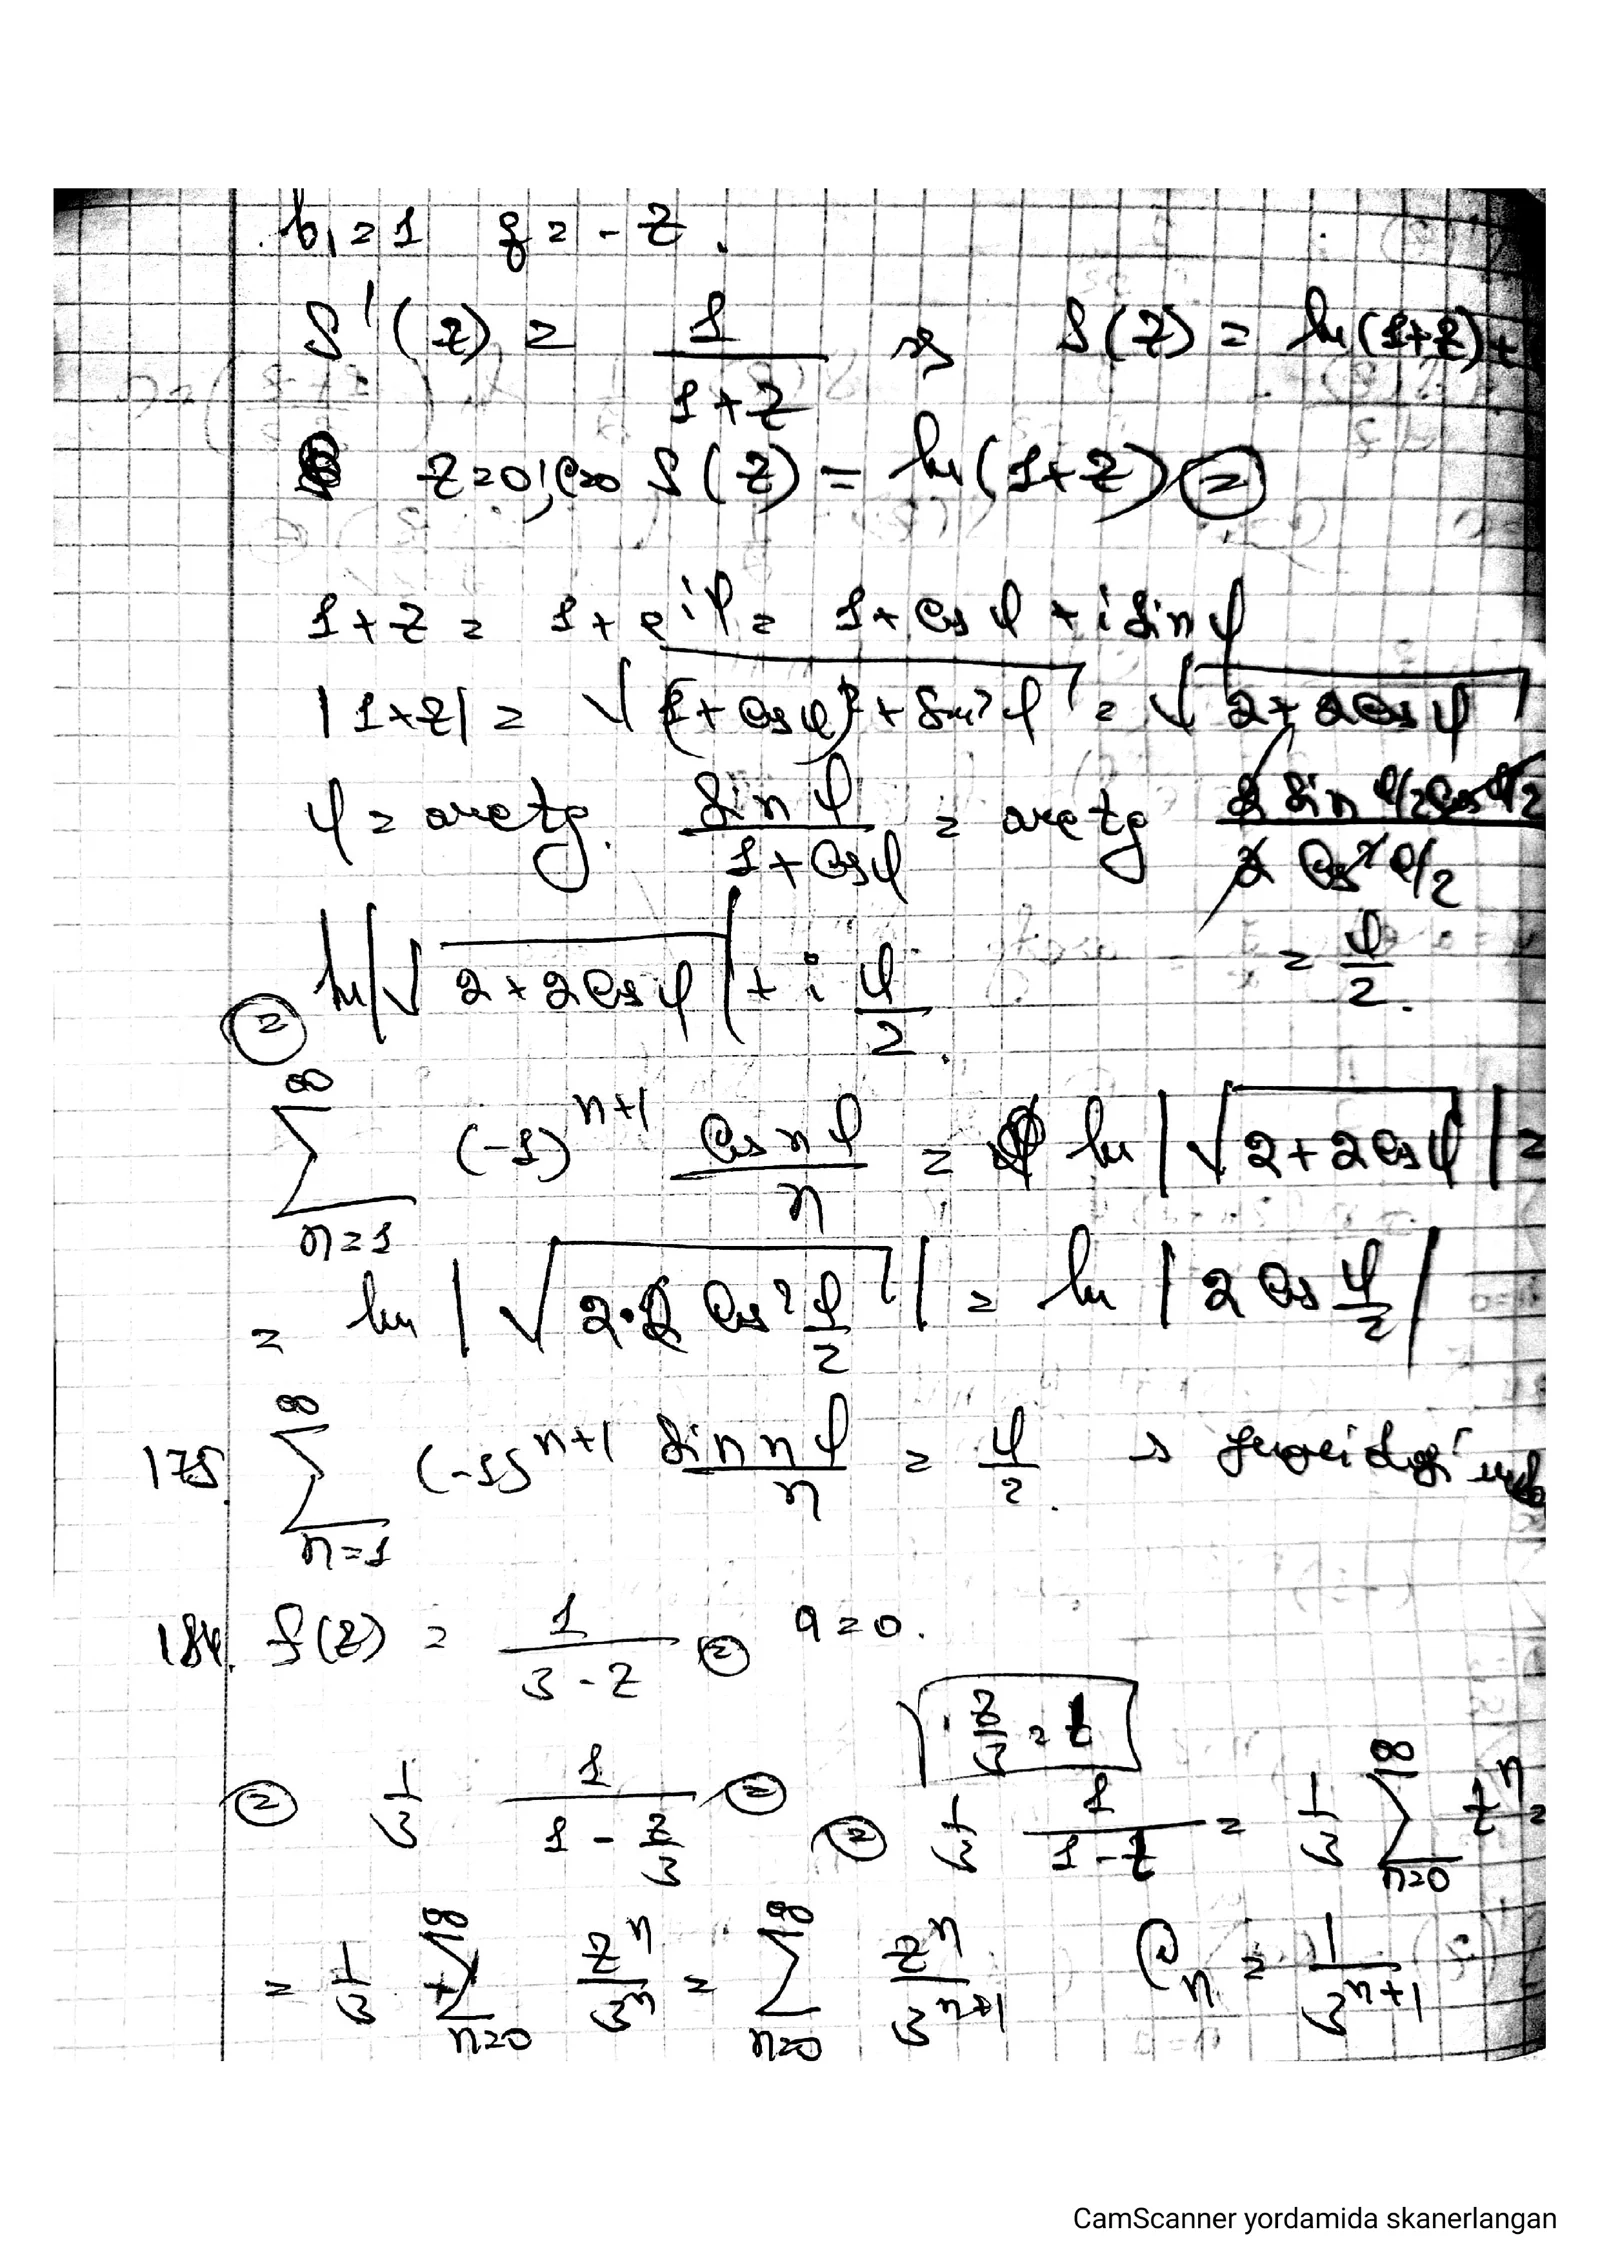 b₁ = 1 q = - z.
S'(z) = 1/(1+z) ⇒ S(z) = ln(1+z)+
z=0; c=0 S(z) = ln(1+z) =
1+z = 1+e^{iφ} = 1+cos φ + i sin φ
|1+z| = √((1+cos φ)² + sin² φ) = √(2+2cos φ)
φ = arctg. sin φ/(1+cos φ) = arctg 2 sin φ/2 cos φ/2 / 2 cos² φ/2
= φ/2.
= ln|√(2+2cos φ)| + i φ/2.
∑_{n=1}^{∞} (-1)^{n+1} cos nφ/n = ln|√(2+2cos φ)| =
= ln|√(2·2 cos² φ/2)| = ln|2 cos φ/2|
175. ∑_{n=1}^{∞} (-1)^{n+1} sin nφ/n = φ/2. →
184. f(z) = 1/(3-z) = a=0.
z/3 = t
= 1/3 1/(1 - z/3) = = 1/3 1/(1-t) = 1/3 ∑_{n=0}^{∞} t^n =
= 1/3 ∑_{n=0}^{∞} z^n/3^n = ∑_{n=0}^{∞} z^n/3^{n+1} C_n = 1/3^{n+1}
CamScanner yordamida skanerlangan